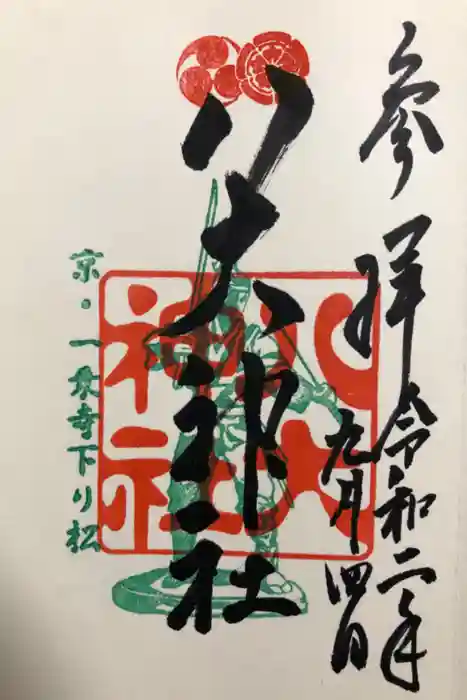 参拝 令和二年
九月四日
八大神社
八大
神社
京・一乗寺下り松